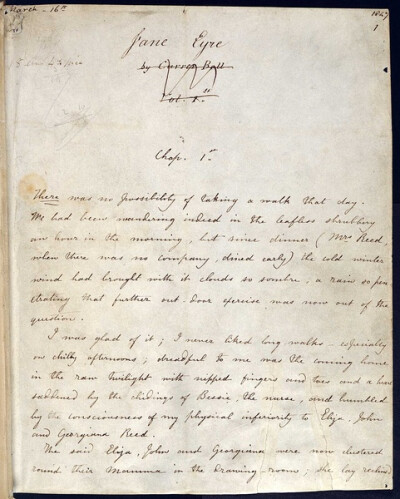 March - 16th
1847
1
Jane Eyre
by Currer Bell
Vol. 1st
Chap. 1st
There was no possibility of taking a walk that day.
We had been wandering indeed in the leafless shrubbery
an hour in the morning, but since dinner (Mrs Reed,
when there was no company, dined early) the cold winter
wind had brought with it clouds so sombre, a rain so pene-
trating that further out-door exercise was now out of the
question.
I was glad of it; I never liked long walks - especially
on chilly afternoons; dreadful to me was the coming home
in the raw twilight with nipped fingers and toes and a heart
saddened by the chidings of Bessie, the nurse, and humbled
by the consciousness of my physical inferiority to Eliza, John
and Georgiana Reed.
The said Eliza, John and Georgiana were now clustered
round their Mamma in the drawing-room; she lay reclined